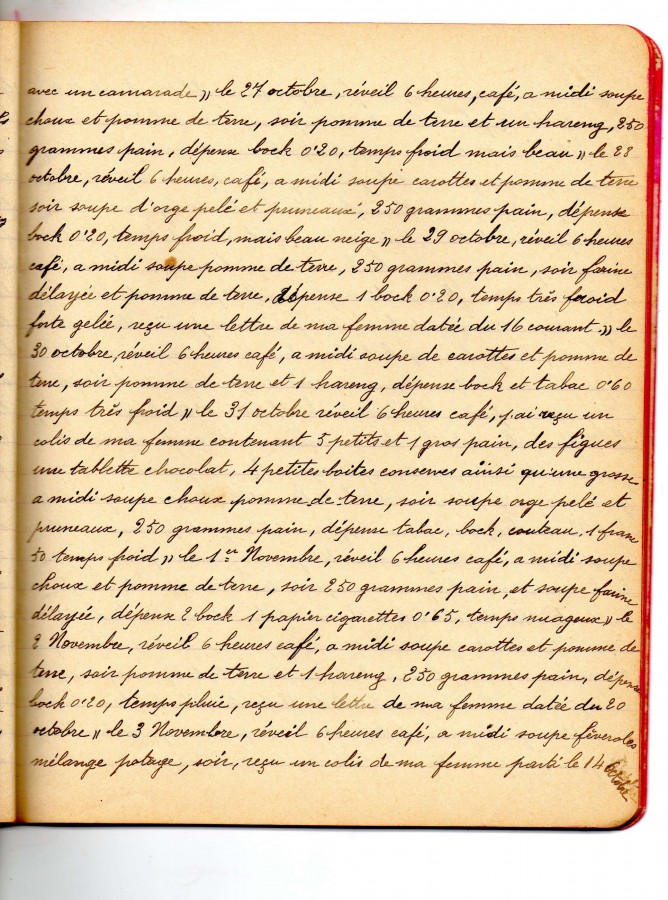 avec un camarade » le 27 octobre, réveil 6 heures, café, a midi soupe
choux et pomme de terre, soir pomme de terre et un hareng, 250
grammes pain, dépense bock 0'20, temps froid mais beau » le 28
octobre, réveil 6 heures, café, a midi soupe carottes et pomme de terre
soir soupe d'orge pelé et pruneaux, 250 grammes pain, dépense
bock 0'20, temps froid, mais beau neige » le 29 octobre, réveil 6 heures
café, a midi soupe pomme de terre, 250 grammes pain, soir farine
délayée et pomme de terre, dépense 1 bock 0'20, temps très froid
forte gelée, reçu une lettre de ma femme datée du 16 courant » le
30 octobre, réveil 6 heures café, a midi soupe de carottes et pomme de
terre, soir pomme de terre et 1 hareng, dépense bock et tabac 0'60
temps très froid » le 31 octobre réveil 6 heures café, j'ai reçu un
colis de ma femme contenant 5 petits et 1 gros pain, des figues
une tablette chocolat, 4 petites boites conserves ainsi qu'une grosse
a midi soupe choux pomme de terre, soir soupe orge pelé et
pruneaux, 250 grammes pain, dépense tabac, bock, couteau, 1 franc
50 temps froid » le 1er Novembre, réveil 6 heures café, a midi soupe
choux et pomme de terre, soir 250 grammes pain, et soupe farine
délayée, dépense 2 bock 1 papier cigarettes 0'65, temps nuageux » le
2 Novembre, réveil 6 heures café, a midi soupe carottes et pomme de
terre, soir pomme de terre et 1 hareng, 250 grammes pain, dépense
bock 0'20, temps pluie, reçu une lettre de ma femme datée du 20
octobre » le 3 Novembre, réveil 6 heures café, a midi soupe féveroles
mélange potage, soir, reçu un colis de ma femme parti le 14 Octobre